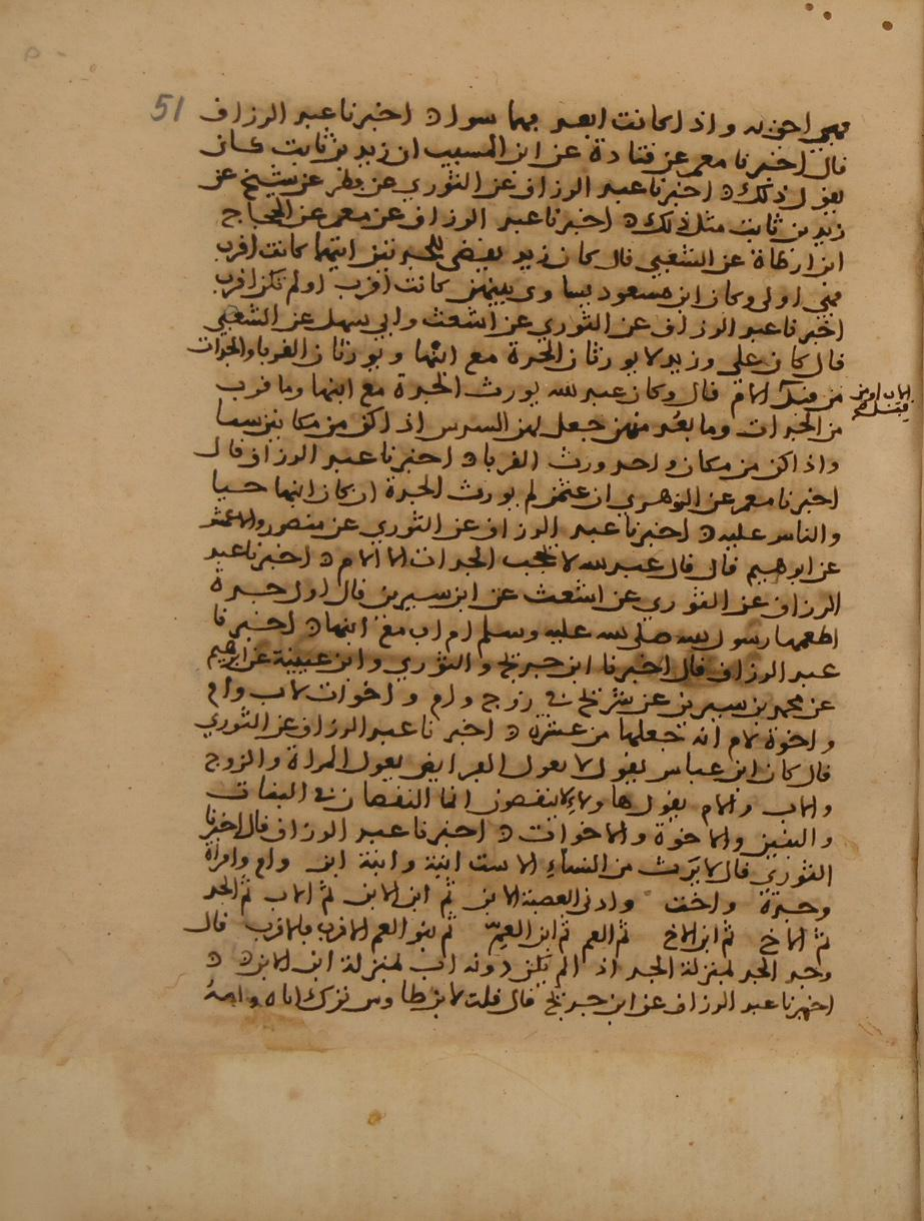 51
فهي احق به واذا كانت ابعد فهما سوا ه اخبرنا عبد الرزاق
قال اخبرنا معمر عن قتادة عن ابن المسيب ان زيد بن ثابت كان
يقول ذلك ه اخبرنا عبد الرزاق عن الثوري عن فطر عن شيخ عن
زيد بن ثابت مثل ذلك ه اخبرنا عبد الرزاق عن معمر عن الحجاج
ابن ارطاة عن الشعبي قال كان زيد يقضي للجدتين ايتهما كانت اقرب
فهي اولى وكان ابن مسعود يساوي بينهن كانت اقرب او لم تكن اقرب
اخبرنا عبد الرزاق عن الثوري عن اشعث وابي سهل عن الشعبي
قال كان علي وزيد لا يورثان الجدة مع ابنها ويورثان القربا من الجدات
من قبل الام قال وكان عبد الله يورث الجدة مع ابنها وما قرب
الاب او من قبل
من الجدات وما بعد منهن جعل لهن السدس اذا كن من مكانين سما
واذا كن من مكان واحد ورث القربا ه اخبرنا عبد الرزاق قال
اخبرنا معمر عن الزهري ان عثمن لم يورث الجدة ان كان ابنها حيا
والناس عليه ه اخبرنا عبد الرزاق عن الثوري عن منصور والاعمش
عن ابرهيم قال قال عبد الله لا يحجب الجدات الا الام ه اخبرنا عبد
الرزاق عن الثوري عن اشعث عن ابن سيرين قال اول جدة
اطعمها رسول الله صلى الله عليه وسلم ام اب مع ابنها ه اخبرنا
عبد الرزاق قال اخبرنا ابن جريج والثوري وابن عيينة عن ابرهيم
عن محمد بن سيرين عن شريح في زوج وام واخوات لاب وام
واخوة لام انه جعلها من عشرة ه اخبرنا عبد الرزاق عن الثوري
قال كان ابن عباس يقول لا يعول الفرايض يعول المراة والزوج
والاب والام يقول هاولاء لا ينقصون انما النقصان في البنات
والبنين والاخوة والاخوات ه اخبرنا عبد الرزاق قال اخبرنا
الثوري قال لا يرث من النساء الا ست ابنة وابنة ابن وام وامراة
وجدة واخت وادنى العصبة الابن ثم ابن الابن ثم الاب ثم الجد
ثم الاخ ثم ابن الاخ ثم العم ثم ابن العم ثم بنو العم الاقرب فالاقرب قال
وجد الجد بمنزلة الجد اذا لم يكن دونه اب بمنزلة ابن الابن ه ه
اخبرنا عبد الرزاق عن ابن جريج قال قلت لابن طاوس ترك اباه وامه